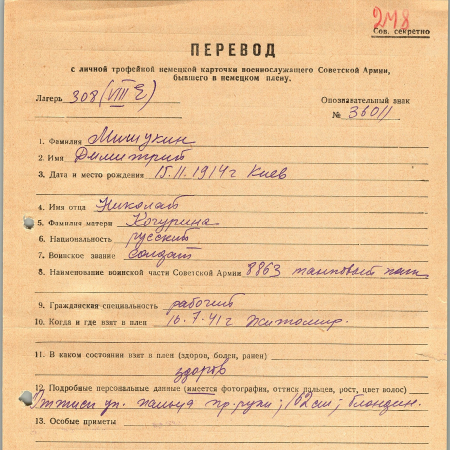 2М8
Сов. секретно
ПЕРЕВОД
с личной трофейной немецкой карточки военнослужащего Советской Армии,
бывшего в немецком плену.
Лагерь 308 (VIII E)
Опознавательный знак
№ 36011
1. Фамилия Мишукин
2. Имя Димитрий
3. Дата и место рождения 15.11.1914г Киев
4. Имя отца Николай
5. Фамилия матери Когурина
6. Национальность русский
7. Воинское звание солдат
8. Наименование воинской части Советской Армии 8863 танковый полк
9. Гражданская специальность рабочий
10. Когда и где взят в плен 16.7.41г Житомир.
11. В каком состоянии взят в плен (здоров, болен, ранен)
здоров
12. Подробные персональные данные (имеется фотография, оттиск пальцев, рост, цвет волос)
Оттиск ук. пальца пр. руки; 162 см; блондин.
13. Особые приметы